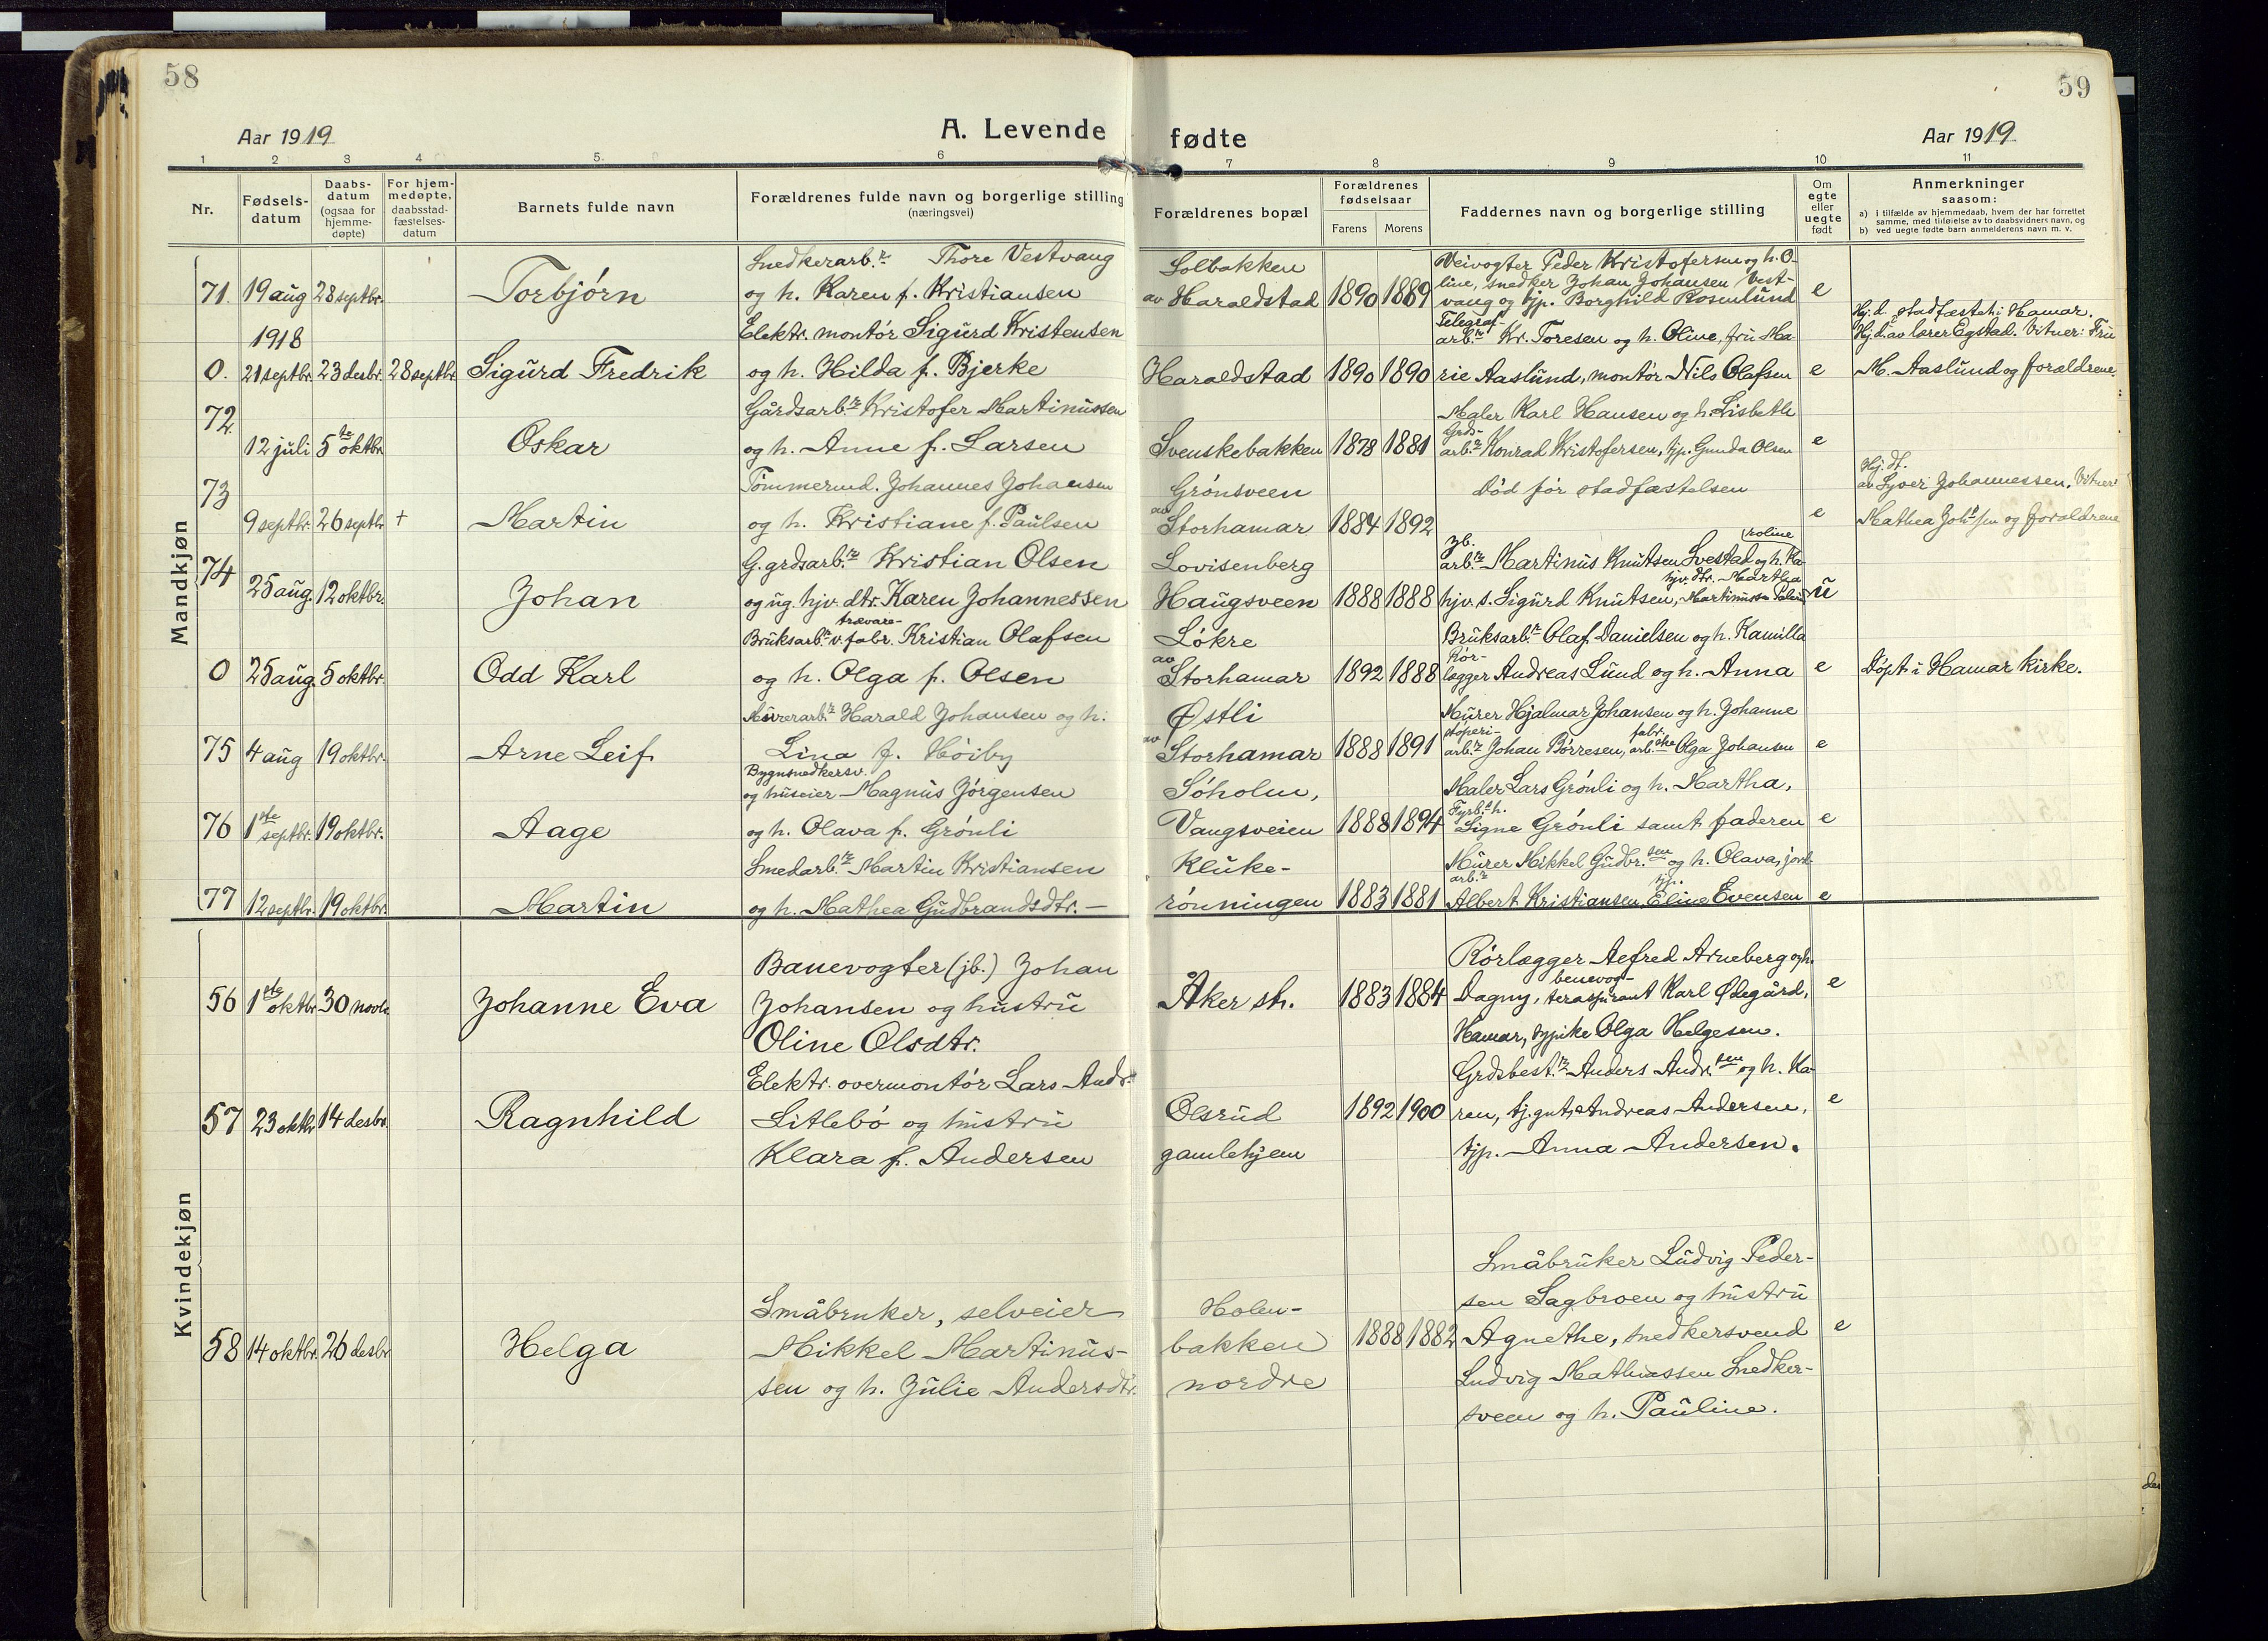 58
59
Aar 1919
A. Levende
fødte
Aar 1919
1 2 3 4 5. 6 7 8 9 10 11
Nr.
Fødselsdatum
Daabs-
datum
(ogsaa for
hjemme-
døpte)
For hjem-
medøpte,
daabsstad-
fæstelses-
datum
Barnets fulde navn
Forældrenes fulde navn og borgerlige stilling
(næringsvei)
Forældrenes bopæl
Forældrenes
fødselsaar
Farens Morens
Faddernes navn og borgerlige stilling
Om
egte
eller
uegte
født
Anmerkninger
saasom:
a) i tilfælde av hjemmedaab, hvem der har forrettet
samme, med tilføielse av to daabsvidners navn, og
b) ved uegte fødte barn anmelderens navn m. v.
Mandkjøn
71. 19 aug 28 septbr. Torbjørn
Snedkerarb.r Thore Vestvang
og h. Karen f. Kristiansen
Solbakken
av Haraldstad 1890 1889
Veivogter Peder Kristofersen og h. O-
line, snedker Johan Johansen Vest-
vang og tjp. Borghild Rosenlund
e
1918
0. 21 septbr. 23 desbr. 28 septbr. Sigurd Fredrik
Elektr. montør Sigurd Kristensen
og h. Hilda f. Bjerke
Haraldstad 1890 1890
Telegraf-
arb.r Kr. Toresen og h. Oline, fru Ma-
rie Aaslund, montør Nils Olafsen
e
Hj.d. stadfæstet i Hamar.
Hj.d. av lærer Egstad. Vitner: Fru
M. Aaslund og forældrene.
72. 12 juli 5te oktbr. Oskar
Gårdsarb.r Kristofer Martinussen
og h. Anne f. Larsen
Svenskebakken 1878 1881
Maler Karl Hansen og h. Lisbeth
Grds-
arb.r Konrad Kristofersen, tjp. Gunda Olsen
e
73 9 septbr. 26 septbr + Martin
Tømmermd. Johannes Johansen
og h. Kristiane f. Paulsen
Grønsveen
av
Storhamar 1884 1892
Død før stadfæstelsen
e
Hj. dt.
av Syver Johannessen. Vitner:
Mathea Joh.sen og forældrene
74 25 aug. 12 oktbr. Johan
G. grdsarb.r Kristian Olsen
og ug. hjv. dtr. Karen Johannessen
Lovisenberg
Haugsveen 1888 1888
jb.
arb.r Martinus Knutsen Svestad og h. Ka-
roline
hjv. s. Sigurd Knutsen, hjv. dtr. Martha
Martinussen
u
0 25 aug. 5 oktbr. Odd Karl
Bruksarb.r v. trævare-
fabr. Kristian Olafsen
og h. Olga f. Olsen
Løkre
av
Storhamar 1892 1888
Bruksarb.r Olaf Danielsen og h. Kamilla
Rør-
lægger Andreas Lund og h. Anna
e
Døpt i Hamar kirke.
75 4 aug 19 oktbr. Arne Leif
Murerarb.r Harald Johansen og h.
Lina f. Høiby
Østli
av
Storhamar 1888 1891
Murer Hjalmar Johansen og h. Johanne
støperi-
arb.r Johan Børresen, fabr.
arb.ske Olga Johansen
e
76 1ste septbr. 19 oktbr. Aage
Bygnsnedkersv.
og huseier Magnus Jørgensen
og h. Olava f. Grønli
Søholm,
Vangsveien 1888 1894
Maler Lars Grønli og h. Martha,
Fyrb. h.
Signe Grønli samt faderen
e
77 12 septbr. 19 oktbr. Martin
Smedarb.r Martin Kristiansen
og h. Mathea Gudbrandsdtr. —
Kluke-
rønningen 1883 1881
Murer Mikkel Gudbr.sen og h. Olava, jord-
arb.r
Albert Kristiansen, tjp. Eline Evensen
e
Kvindekjøn
56 1ste oktbr. 30 novbr. Johanne Eva
Banevogter (jb.) Johan
Johansen og hustru
Oline Olsdtr.
Åker st. 1883 1884
Rørlægger Alfred Arneberg og h.
Dagny, banevog-
teraspirant Karl Ødegård,
Hamar, tjpike Olga Helgesen.
e
57 23 oktbr 14 desbr. Ragnhild
Elektr. overmontør Lars Andr.
Litlebø og hustru
Klara f. Andersen
Olsrud
gamlehjem 1892 1900
Grdsbest.r Anders Andr.sen og h. Ka-
ren, tj.gut Andreas Andersen,
tjp. Anna Andersen.
e
58 14 oktbr. 26 desbr Helga
Småbruker, selveier
Mikkel Martinus-
sen og h. Julie Andersdtr.
Holen-
bakken
nordre
1888 1882
Småbruker Ludvig Peder-
sen Sagbroen og hustru
Agnethe, snedkersvend
Ludvig Mathiassen Snedker-
sveen og h. Pauline.
e